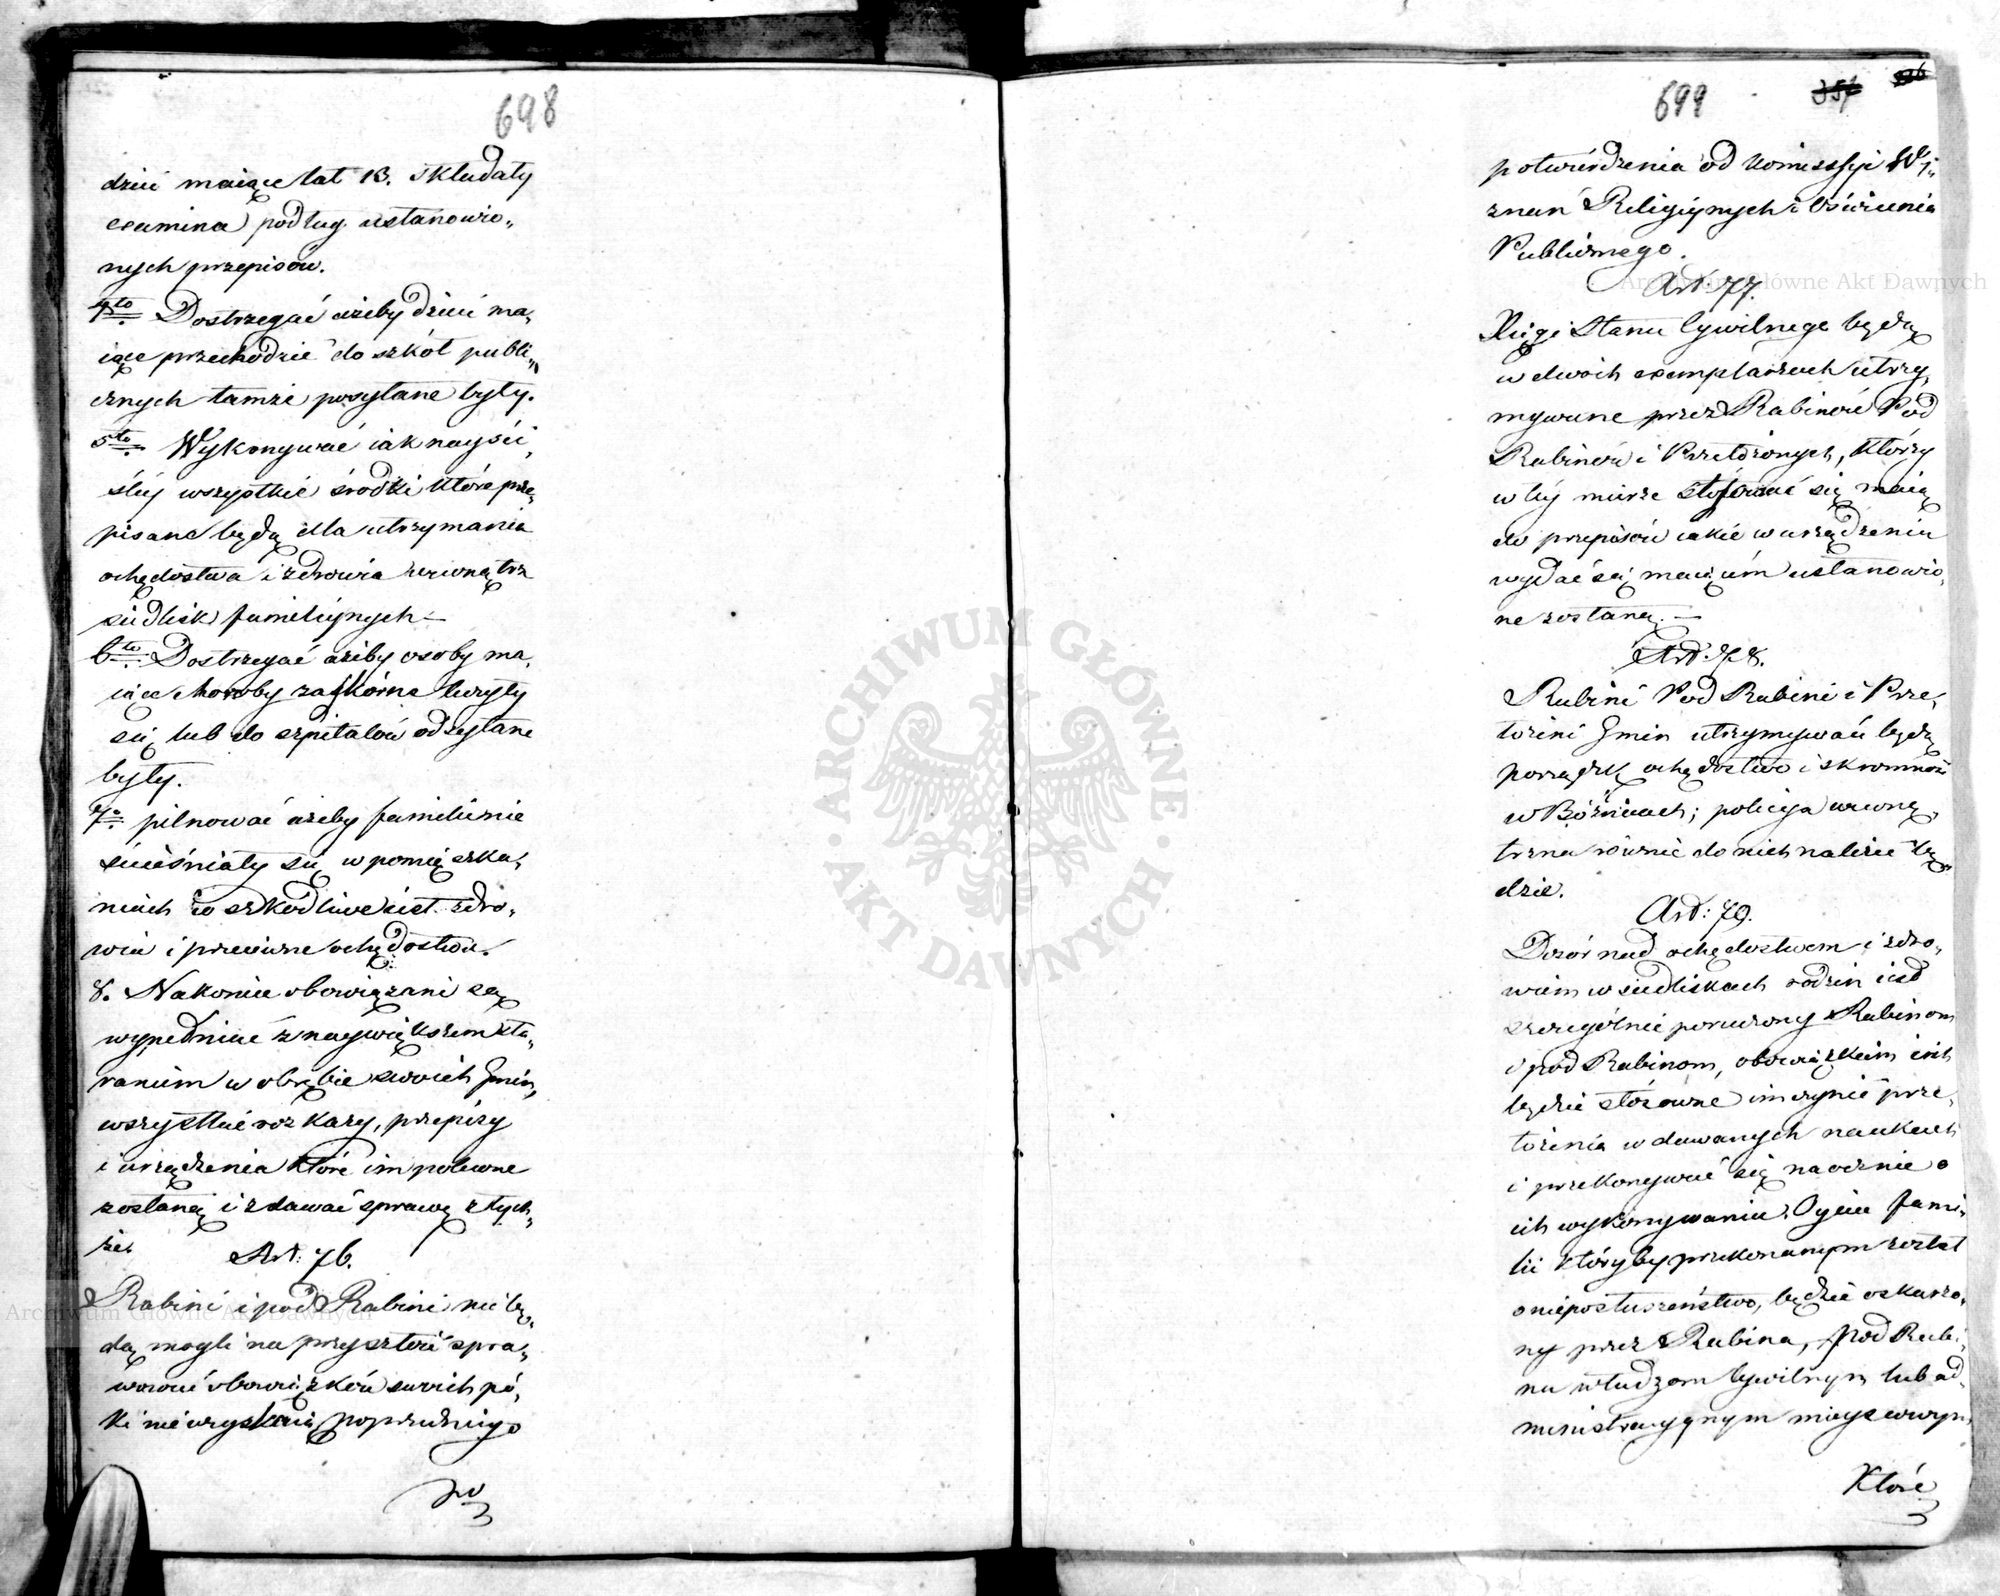 698
dzieci maiące lat 13. składały
examina podług ustanowio„
nych przepisów.
4to Dostrzegać ażeby dzieci ma„
iące przechodzić do szkół publi„
cznych tamże posyłane były.
5to Wykonywać iak nayści„
śley wszystkie środki które prze„
pisane będą dla utrzymania
ochędostwa i zdrowia zewnątrz
siedlisk familiynych —
6to Dostrzegać ażeby osoby ma„
iące choroby zaskórne leczyły
się lub do szpitalów odsyłane
były.
7o pilnować ażeby familie nie
ścieśniały się w pomięszka„
niach co szkodliwe iest zdro„
wiu i przeciwne ochędostwu.
8. Nakoniec obowiązani są
wypełniać z naywiększem sta„
raniem w obrębie swoich Gmin,
wszystkie rozkazy, przepisy
i urządzenia które im polecone
zostaną i zdawać sprawę z tych„
że.
Art: 76.
Rabini i pod Rabini nie bę„
dą mogli na przyszłość spra„
wować obowiązków swoich pó„
ki nie uzyskaią poprzedniego
po
699
potwierdzenia od Komissyi Wy„
znań Religiynych i Oświecenia
Publicznego.
Art: 77.
Xięgi Stanu Cywilnego będą
w dwóch exemplarzach utrzy„
mywane przez Rabinów Pod
Rabinów i Przełożonych, którzy
w tey mierze stosować się maią
do przepisów iakie w urządzeniu
wydać się maiącem ustanowio„
ne zostaną. —
Art: 78.
Rabini Pod Rabini i Prze„
łożeni Gmin utrzymywać będą
porządek ochędostwo i skromność
w Bóżnicach; policya wewnę„
trzna równie do nich należeć bę„
dzie.
Art: 79.
Dozór nad ochędostwem i zdro„
wiem w siedliskach rodzin iest
szczególnie poruczony Rabinom
i pod Rabinom, obowiązkiem ich
będzie stosowne im czynić prze„
łożenia w dawanych naukach
i przekonywać się naocznie o
ich wykonywaniu. Oyciec fami„
lii któryby przekonanym został
o nieposłuszeństwo, będzie oskarżo„
ny przez Rabina, Pod Rabi„
na władzom Cywilnym lub ad„
ministracyynym mieyscowym,
Które
Archiwum Główne Akt Dawnych
Archiwum Główne Akt Dawnych
ARCHIWUM GŁÓWNE
AKT DAWNYCH